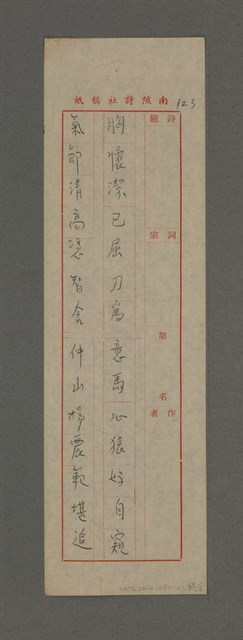 南陔詩社稿紙
123
詩題 詞宗 第 名 作者
胸懷潔己屈刀為意馬心猿好自窺
氣節清高憑智含仲山楊震範堪追